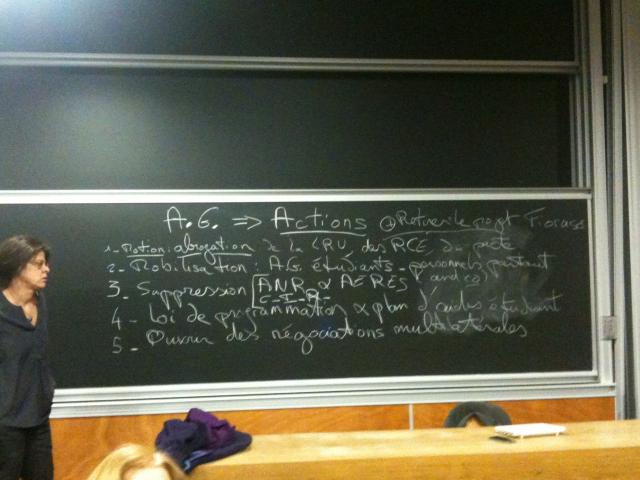 A.G. ⇒ Actions @ Retirer le projet Fioraso
1 - Motion: abrogation de la LRU, des RCE, du pacte
2 - Mobilisation: A.G. étudiants - personnels partout
3. Suppression ANR & AERES (and co)
C.I.R.
4 - Loi de programmation & plan d' étudiant
5 - Ouvrir des négociations multilatérales